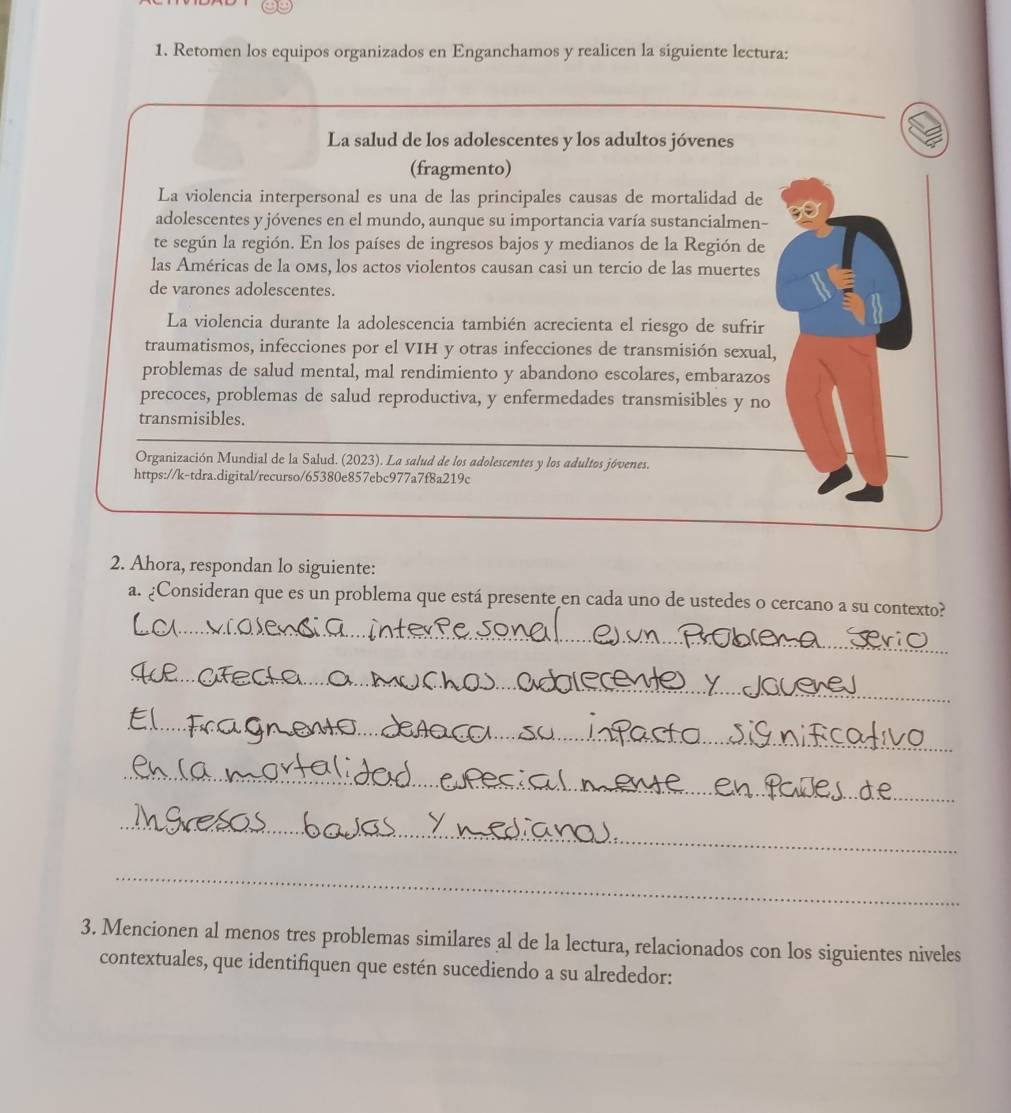 1. Retomen los equipos organizados en Enganchamos y realicen la siguiente lectura:
La salud de los adolescentes y los adultos jóvenes
(fragmento)
La violencia interpersonal es una de las principales causas de mortalidad de
adolescentes y jóvenes en el mundo, aunque su importancia varía sustancialmen-
te según la región. En los países de ingresos bajos y medianos de la Región de
las Américas de la OMS, los actos violentos causan casi un tercio de las muertes
de varones adolescentes.
La violencia durante la adolescencia también acrecienta el riesgo de sufrir
traumatismos, infecciones por el VIH y otras infecciones de transmisión sexual,
problemas de salud mental, mal rendimiento y abandono escolares, embarazos
precoces, problemas de salud reproductiva, y enfermedades transmisibles y no
transmisibles.
Organización Mundial de la Salud. (2023). La salud de los adolescentes y los adultos jóvenes.
https://k-tdra.digital/recurso/65380e857ebc977a7f8a219c
2. Ahora, respondan lo siguiente:
a. ¿Consideran que es un problema que está presente en cada uno de ustedes o cercano a su contexto?
La viosensia interpesonal es un Problema serio
que afecta a muchos adolecentes y Jovenes
El Fragmento destaca su inpacto significativo
en la mortalidad especialmente en paises de
ingresos bajos y medianos.
3. Mencionen al menos tres problemas similares al de la lectura, relacionados con los siguientes niveles
contextuales, que identifiquen que estén sucediendo a su alrededor: